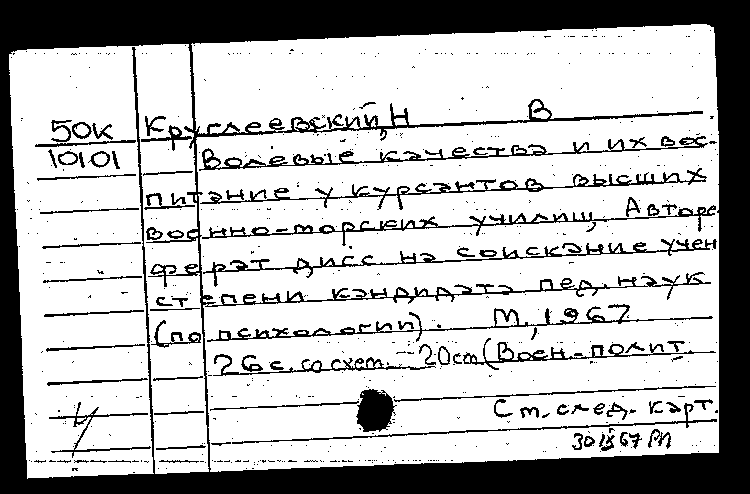 50к Круглеевский, Н В
10101 Волевые качества и их вос-
питание у курсантов высших
военно-морских училищ. Авторе-
ферат дисс. на соискание учен
степени кандидата пед. наук
(по психологии). М., 1967
26 с. со схем. 20 cm (Воен.-полит.
См. след. карт.
30 IX 67